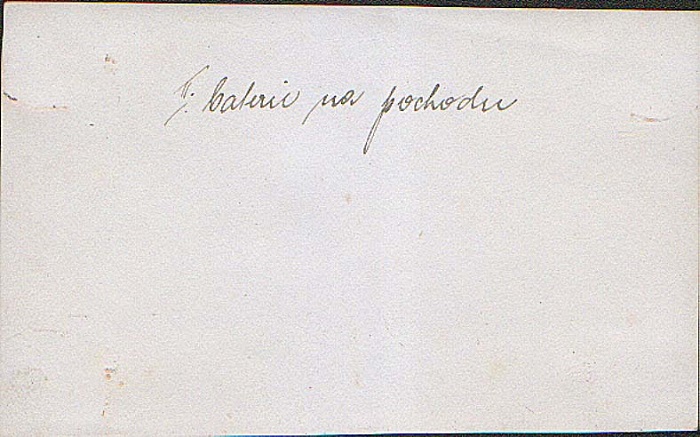 baterie na pochodu